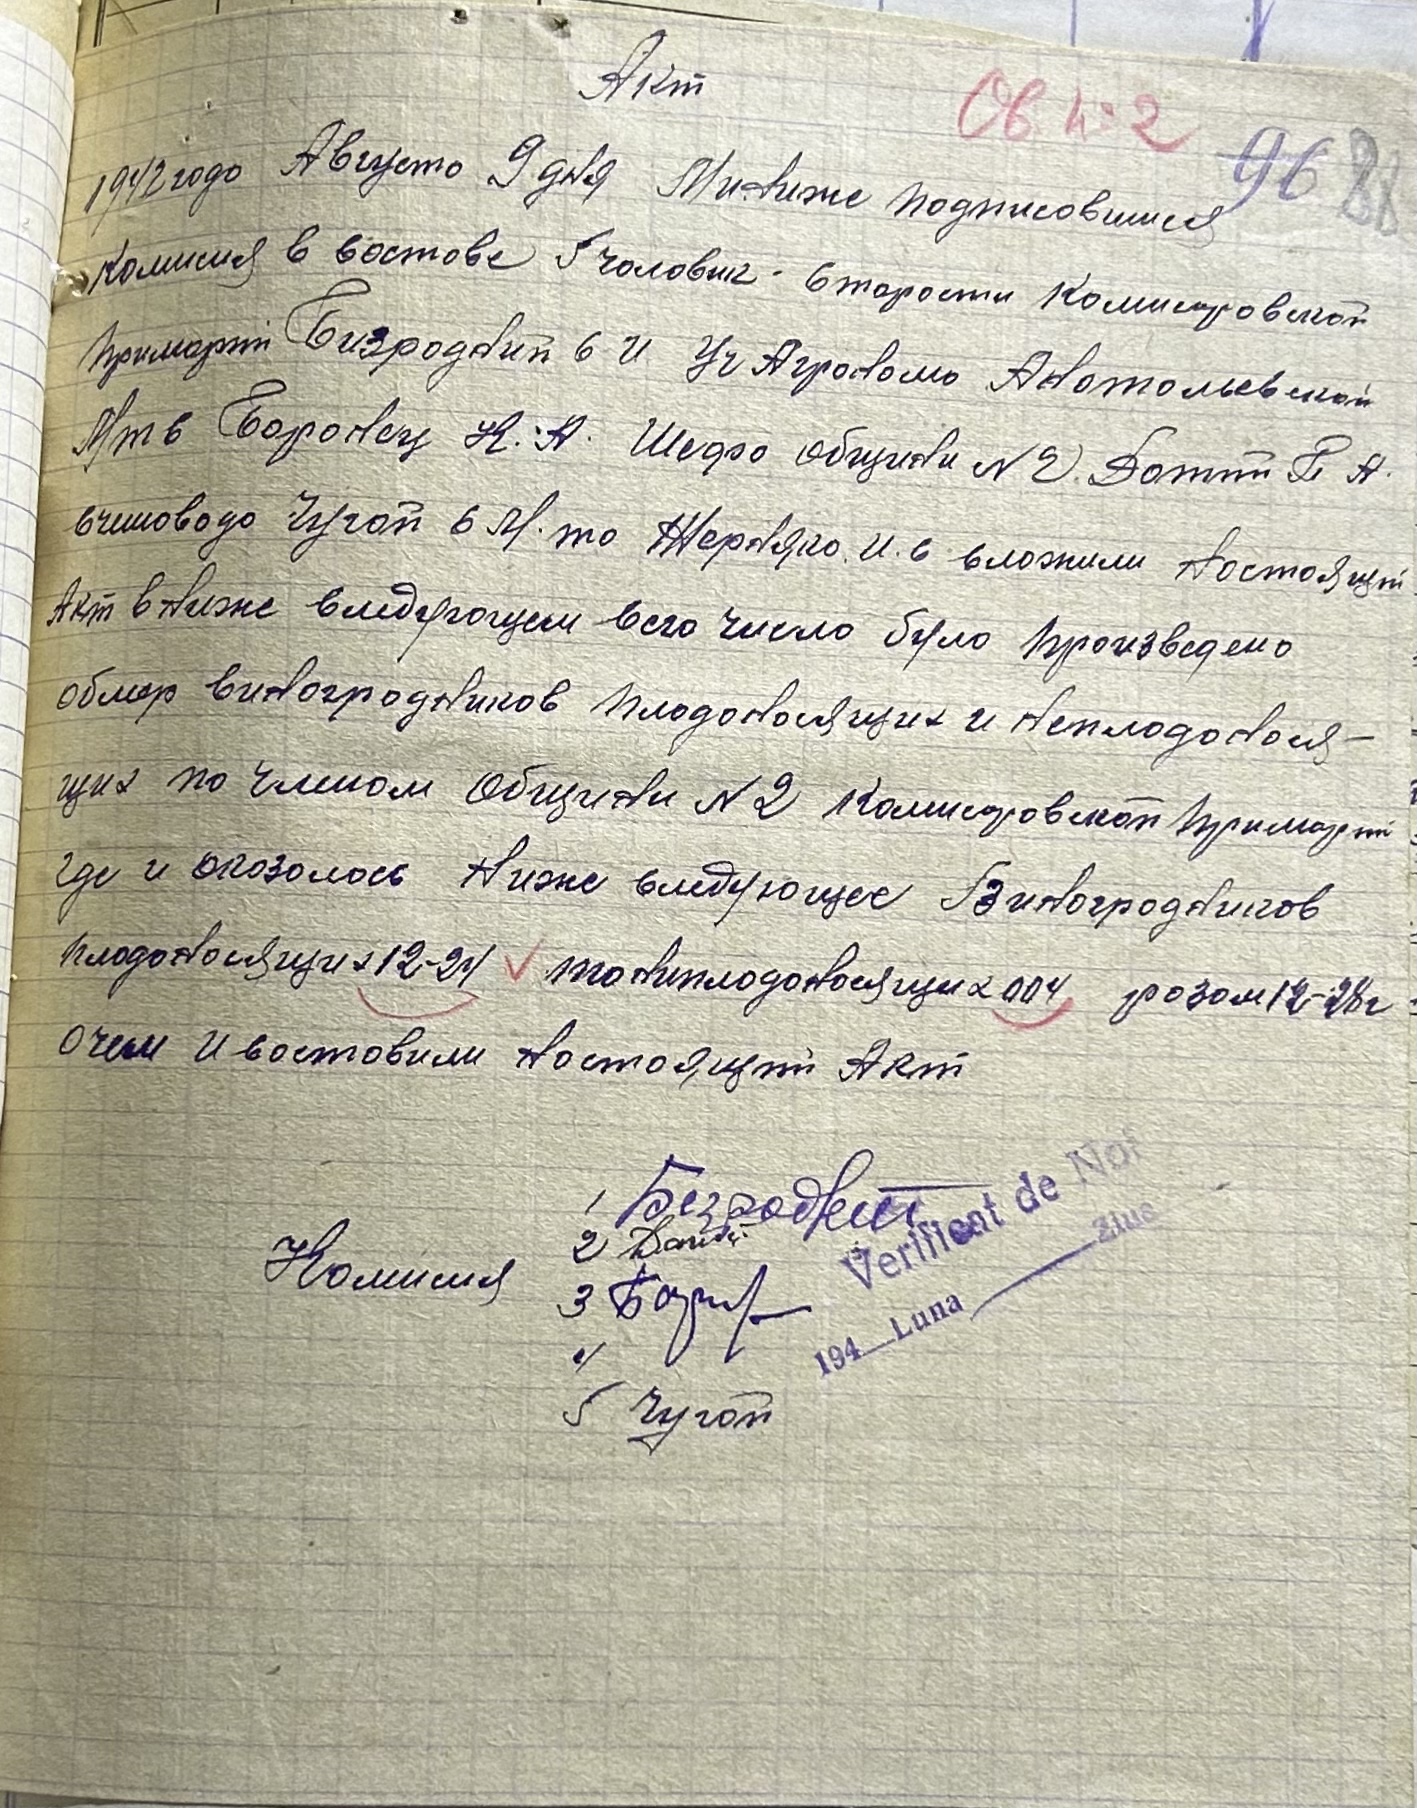 Акт
Об №2
96 88
1942 года Августа 9 дня Мы ниже подписовшися
Комисия в составе 5 человик. Старости Комисаровской
Примарии Бизродний С И Уч Агронома Анатольевской
Мтв Боронец К. А. Шефа общини №2. Б А.
счиловода Чугай С М. та Жерняка. И. С сложили настоящий
Акт в ниже следующем всего число було произведено
обмер виноградников плодоносящих и неплодонося-
щих по членам общини №2 Комисаровской Примарии
где и оказалось ниже следующее Виноградников
плодоносящих 12-24 та ниплодоносящих 004 разом 12-28 г
очем и состовили настоящий Акт
1 Безродний
2
Комисия
3
4
5 Чугай
Verificat de Noi
194__Luna ______ Ziua